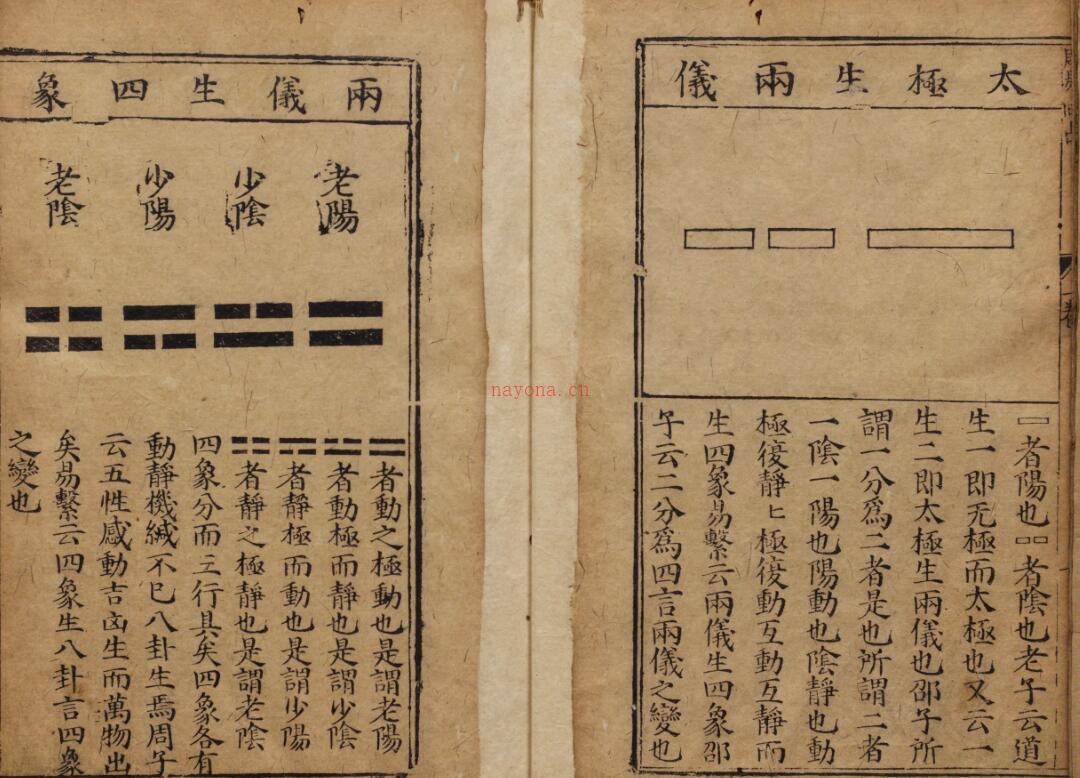 太極生兩儀
⚊者陽也⚋者陰也老子云道
生一即无極而太極也又云一
生二即太極生兩儀也邵子所
謂一分爲二者是也所謂二者
一陰一陽也陽動也陰靜也動
極復靜〻極復動互動互靜而
生四象易繫云兩儀生四象邵
子云二分爲四言兩儀之變也
兩儀生四象
老陽
少陰
少陽
老陰
⚌者動之極動也是謂老陽
⚍者動極而靜也是謂少陰
⚎者靜極而動也是謂少陽
⚏者靜之極靜也是謂老陰
四象分而三行具矣四象各有
動靜機緘不已八卦生焉周子
云五性感動吉凶生而萬物出
矣易繫云四象生八卦言四象
之變也
nayona.cn